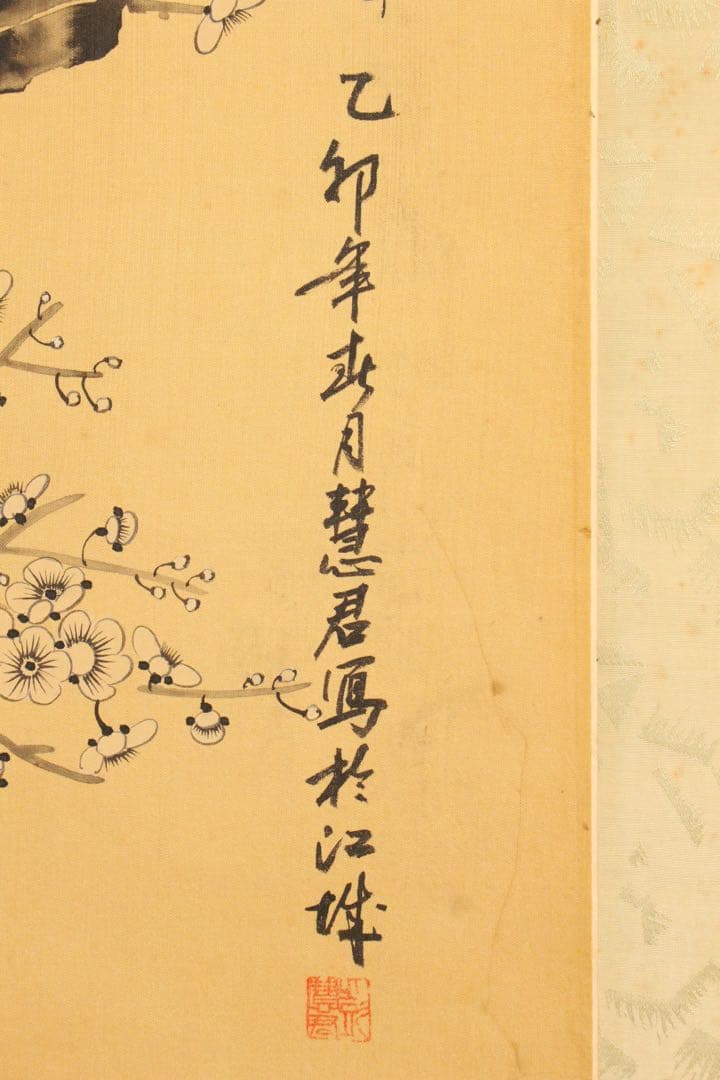 乙卯年春月慧君寫於江城